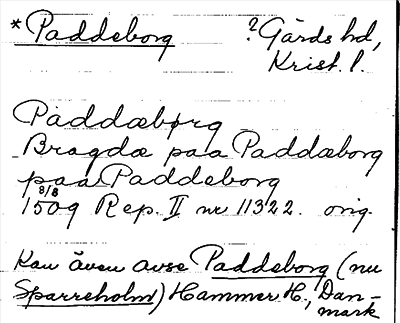 *Paddeborg ?Gärds hd,
Krist. l.
Paddæborg
Bragdæ paa Paddæborg
paa Paddeborg
1509 8/8 Rep. II nr 11322. orig.
Kan även avse Paddeborg (nu
Sparreholm) Hammer H., Dan-
mark